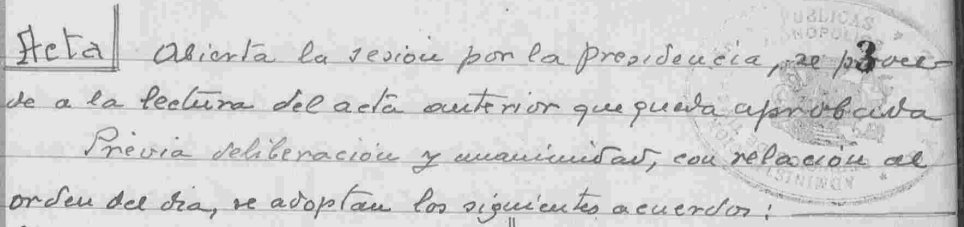 Acta Abierta la sesión por la presidencia, se proce-
de a la lectura del acta anterior que queda aprobada
Previa deliberación y unanimidad, con relación al
orden del dia, se adoptan los siguientes acuerdos:
3